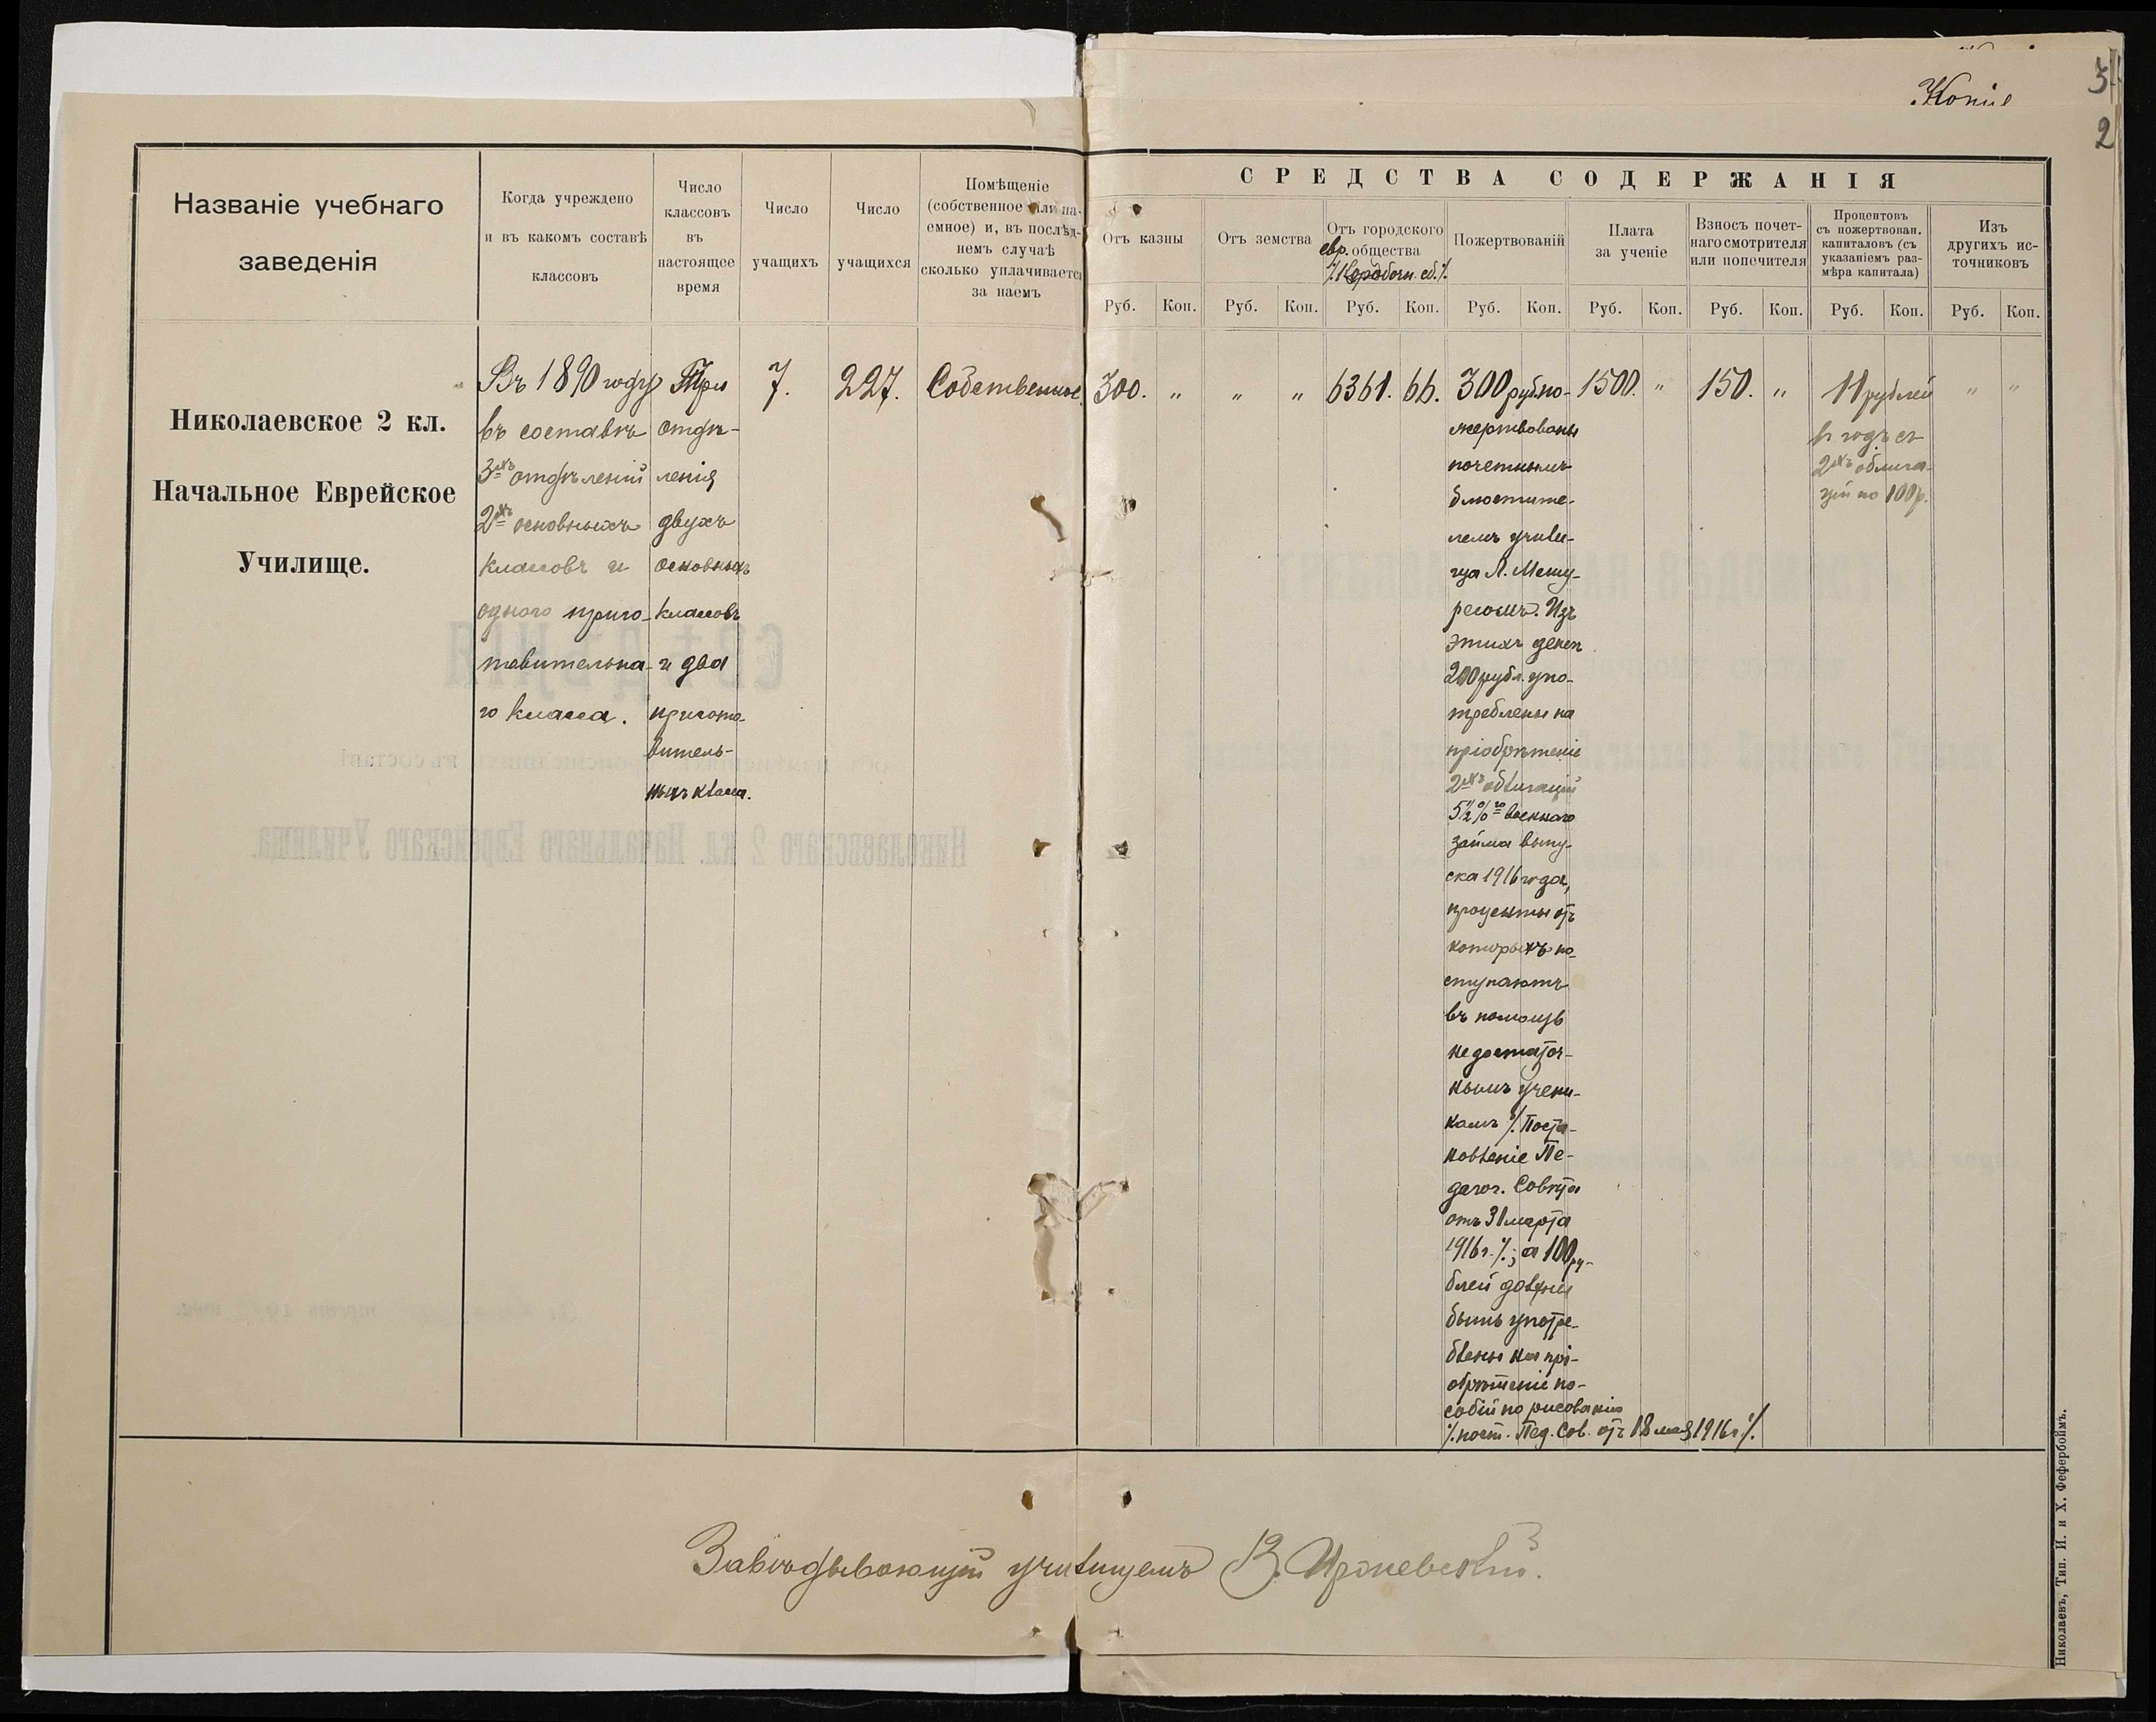 Копія
3
2
Названіе учебнаго
заведенія
Когда учреждено
и въ какомъ составѣ
классовъ
Число
классовъ
въ
настоящее
время
Число
учащихъ
Число
учащихся
Помѣщеніе
(собственное или на-
емное) и, въ послѣд-
немъ случаѣ
сколько уплачивается
за наемъ
СРЕДСТВА СОДЕРЖАНІЯ
Отъ казны
Отъ земства
Отъ городского
евр. общества
/.Коробочн. сб./.
Пожертвованій
Плата
за ученіе
Взносъ почет-
наго смотрителя
или попечителя
Процентовъ
съ пожертвован.
капиталовъ (съ
указаніемъ раз-
мѣра капитала)
Изъ
другихъ ис-
точниковъ
Руб. Коп. Руб. Коп. Руб. Коп. Руб. Коп. Руб. Коп. Руб. Коп. Руб. Коп. Руб. Коп.
Николаевское 2 кл.
Начальное Еврейское
Училище.
Въ 1890 году
въ составѣ
3-хъ отдѣленій
2-хъ основныхъ
классовъ и
одного приго-
товительна-
го класса.
Три
отдѣ-
ленія
двухъ
основныхъ
классовъ
и два
пригото-
витель-
ныхъ класса.
7.
227.
Собственное.
300. „
„ „
6361. 66.
300 руб. по-
жертвованы
почетнымъ
блюстите-
лемъ учили-
ща Л. Мешу-
ресомъ. Изъ
этихъ денегъ
200 рубл. упо-
треблены на
пріобрѣтеніе
2-хъ облигацій
5½%-го военнаго
займа выпу-
ска 1916 года,
проценты отъ
которыхъ по-
ступаютъ
въ помощь
недостаточ-
нымъ учени-
камъ /. Поста-
новленіе Пе-
дагог. Совѣта
отъ 31 марта
1916 г. /.; а 100 ру-
блей должны
быть употре-
блены на прі-
обрѣтеніе по-
собій по рисованію
/. пост. Пед. Сов. отъ 18 мая 1916 г. /.
1500. „
150. „
11 рублей
въ годъ съ
2-хъ облига-
цій по 100 р.
„ „
Завѣдывающій училищемъ В. Иржевскій.
Николаевъ, Тип. И. и Х. Фефербоймъ.